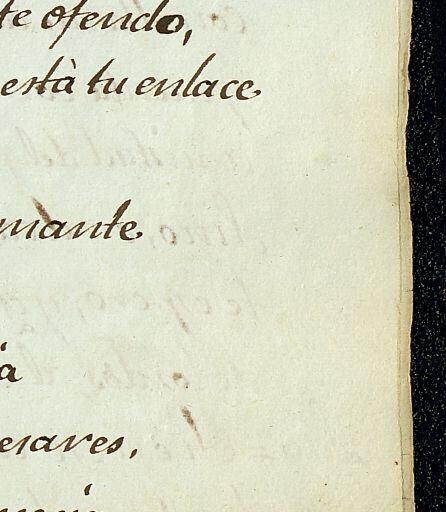 te ofendo,
està tu enlace
mante
a
esares,